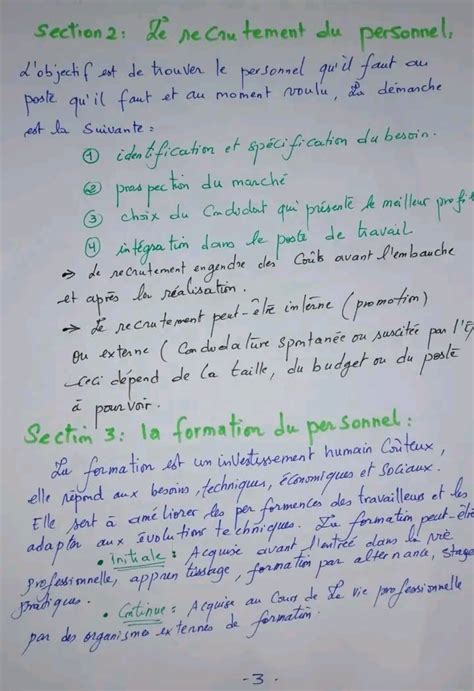 Section 2: Le recrutement du personnel.
L'objectif est de trouver le personnel qu'il faut au
poste qu'il faut et au moment voulu, La démarche
est la Suivante :
① identification et spécification du besoin.
② prospection du marché
③ choix du Candidat qui présente le meilleur profi
④ intégration dans le poste de travail
→ Le recrutement engendre des Coûts avant l'embauche
et après la réalisation.
→ Le recrutement peut-être interne (promotion)
ou externe (Candidature spontanée ou suscitée par l'E
ceci dépend de la taille, du budget ou du poste
à pourvoir.
Section 3: la formation du personnel :
La formation est un investissement humain Coûteux,
elle répond aux besoins, techniques, économiques et Sociaux.
Elle sert à améliorer les performences des travailleurs et les
adapter aux évolutions techniques. La formation peut-être
• initiale : Acquise avant l'entrée dans la vie
professionnelle, apprentissage, formation par alternance, stages
pratiques.
• Continue : Acquise au Cours de la vie professionnelle
par des organismes externes de formation.
- 3 -